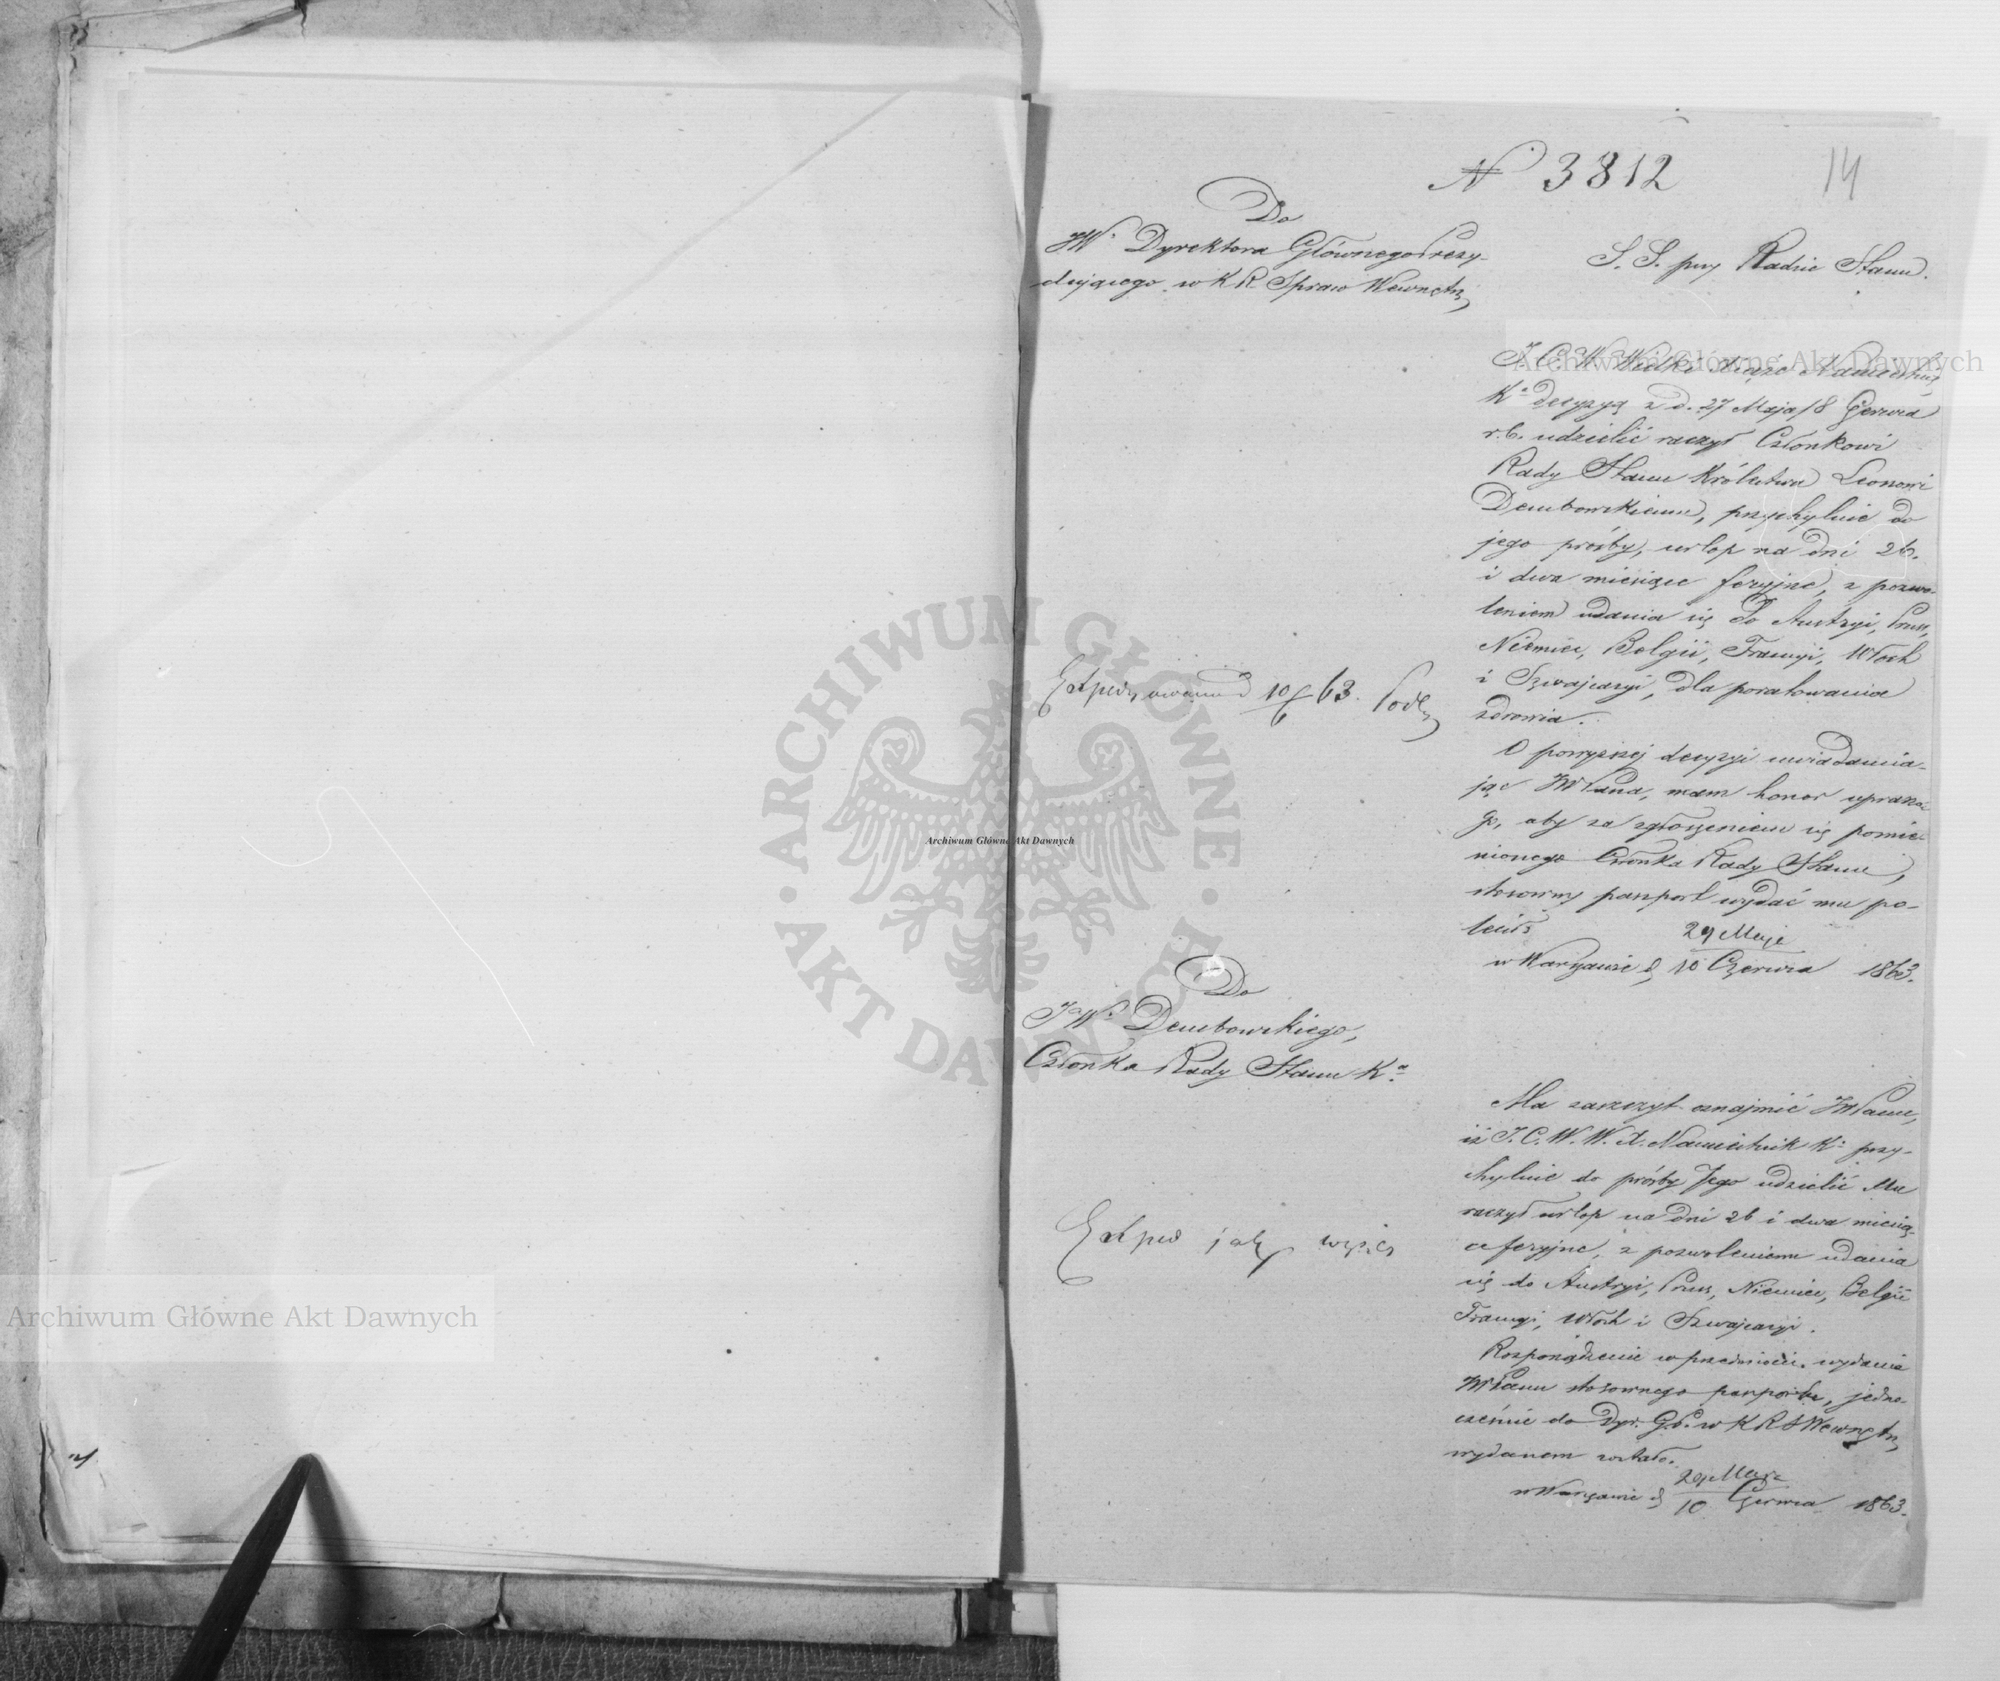 N 3812
14
Do
JW. Dyrektora Głównego Prezy-
dującego w K R Spraw Wewnętrz
S. S. przy Radzie Stanu.
J. C. W. Wielki Książe Namiestnik
Kª decyzyą z d. 27 Maja/8 Czerwca
r. b. udzielić raczył Członkowi
Rady Stanu Królestwa Leonowi
Dembowskiemu, przychylnie do
jego prośby, urlop na dni 26.
i dwa miesiące feryjne, z pozwo-
leniem udania się do Austryi, Pruss,
Niemiec, Belgii, Francyi, Włoch
i Szwajcaryi, dla poratowania
zdrowia.
Expedyowano d 10/6 63.
O powyższej decyzyi uwiadamia-
jąc JWPana, mam honor upraszać
Go, aby za zgłoszeniem się pomie-
nionego Członka Rady Stanu,
stosowny paszport wydać mu po-
lecił
29 Maja
w Warszawie d 10 Czerwca 1863.
Do
JW. Dembowskiego,
Członka Rady Stanu Kª
Ma zaszczyt oznajmić JWPanu,
iż J. C. W. W. X. Namiestnik Kª przy-
chylnie do prośby Jego udzielić Mu
raczył urlop na dni 26 i dwa miesią-
ce feryjne, z pozwoleniem udania
się do Austryi, Prus, Niemiec, Belgii
Francyi, Włoch i Szwajcaryi.
Exped jak wyżej
Rozporządzenie w przedmiocie wydania
JWPanu stosownego paszportu, jedno-
cześnie do Dyr. Gł. w K R S Wewnętrz
wydanem zostało.
29 Maja
w Warszawie d 10 Czerwca 1863.
Archiwum Główne Akt Dawnych
Archiwum Główne Akt Dawnych
Archiwum Główne Akt Dawnych
ARCHIWUM GŁÓWNE AKT DAWNYCH